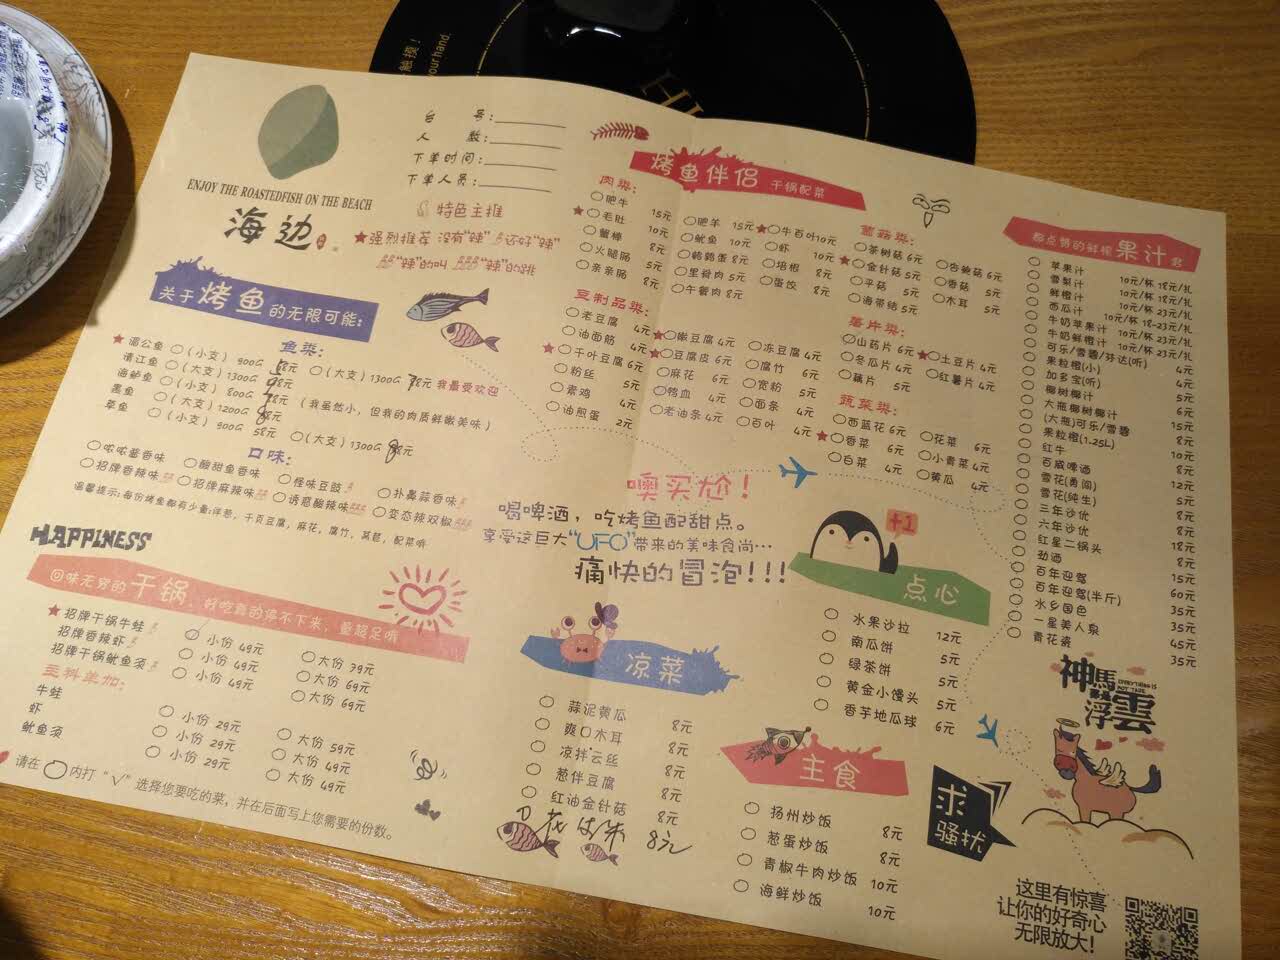 触摸！
your hand.
ENJOY THE ROASTEDFISH ON THE BEACH
海边
台 号：
人 数：
下单时间：
下单人员：
特色主推
★强烈推荐 没有“辣” 还好“辣”
“辣”的叫 “辣”的跳
关于烤鱼的无限可能：
鱼类：
★湄公鱼 ○（小支）900G 8元 ○（大支）1300G 78元 我最受欢迎
清江鱼 ○（大支）1300G 98元
海鲈鱼 ○（小支）800G 78元（我虽然小，但我的肉质鲜嫩美味）
黑鱼 ○（大支）1200G 88元
草鱼 ○（小支）900G 58元 ○（大支）1300G 88元
口味：
○浓浓酱香味 ○酸甜鱼香味 ○怪味豆豉 ○扑鼻蒜香味
○招牌香辣味 ○招牌麻辣味 ○诱惑酸辣味 ○变态辣双椒
温馨提示：每份烤鱼都有少量：洋葱，千页豆腐，麻花，腐竹，莴苣，配菜哦
HAPPINESS
回味无穷的干锅，好吃真的停不下来，量超足哦
★招牌干锅牛蛙 ○小份 49元 ○大份 79元
招牌香辣虾 ○小份 49元 ○大份 69元
招牌干锅鱿鱼须 ○小份 49元 ○大份 69元
主料单加：
牛蛙 ○小份 29元 ○大份 59元
虾 ○小份 29元 ○大份 49元
鱿鱼须 ○小份 29元 ○大份 49元
请在○内打“√”选择您要吃的菜，并在后面写上您需要的份数。
烤鱼伴侣 干锅配菜
肉类：
○肥牛 15元 ○肥羊 15元 ★○牛百叶10元
★○毛肚 10元 ○鱿鱼 10元 ○虾 10元
○蟹棒 8元 ○鹌鹑蛋 8元 ○培根 8元
○火腿肠 5元 ○里脊肉 5元 ○蛋饺 8元
○亲亲肠 5元 ○午餐肉 8元
豆制品类：
○老豆腐 4元 ★○嫩豆腐 4元 ○冻豆腐 4元
○油面筋 4元 ★○豆腐皮 6元 ○腐竹 6元
★○千叶豆腐 6元 ○麻花 6元 ○宽粉 5元
○粉丝 5元 ○鸭血 4元 ○面条 4元
○素鸡 4元 ○老油条 4元 ○百叶 4元
○油煎蛋 2元
菌菇类：
○茶树菇 6元 ○杏鲍菇 6元
★○金针菇 5元 ○香菇 5元
○平菇 5元 ○木耳 5元
○海带结 5元
薯片类：
○山药片 6元 ★○土豆片 4元
○冬瓜片 4元 ○红薯片 4元
○藕片 5元
蔬菜类：
○西蓝花 6元 ○花菜 6元
★○香菜 6元 ○小青菜 4元
○白菜 4元 ○黄瓜 4元
噢买尬！
喝啤酒，吃烤鱼配甜点。
享受这巨大“UFO”带来的美味食尚…
痛快的冒泡!!!
+1
凉菜
○ 蒜泥黄瓜 8元
○ 爽口木耳 8元
○ 凉拌云丝 8元
○ 葱伴豆腐 8元
○ 红油金针菇 8元
花生米 8元
点心
○ 水果沙拉 12元
○ 南瓜饼 5元
○ 绿茶饼 5元
○ 黄金小馒头 5元
○ 香芋地瓜球 6元
主食
○ 扬州炒饭 8元
○ 葱蛋炒饭 8元
○ 青椒牛肉炒饭 10元
○ 海鲜炒饭 10元
都点赞的鲜榨果汁
○ 苹果汁 10元/杯 18元/扎
○ 雪梨汁 10元/杯 18元/扎
○ 鲜橙汁 10元/杯 23元/扎
○ 西瓜汁 10元/杯 18-23元/扎
○ 牛奶苹果汁 10元/杯 23元/扎
○ 牛奶鲜橙汁 10元/杯 23元/扎
○ 可乐/雪碧/芬达(听) 4元
○ 果粒橙(小) 4元
○ 加多宝(听) 5元
○ 椰树椰汁 5元
○ 大瓶椰树椰汁 15元
○ (大瓶)可乐/雪碧 8元
○ 果粒橙(1.25L) 10元
○ 红牛 8元
○ 百威啤酒 12元
○ 雪花(勇闯) 5元
○ 雪花(纯生) 8元
○ 三年沙优 8元
○ 六年沙优 18元
○ 红星二锅头 8元
○ 劲酒 15元
○ 百年迎驾 60元
○ 百年迎驾(半斤) 35元
○ 水乡国色 35元
○ 一星美人泉 45元
○ 青花瓷 35元
神馬
都是
浮雲
EVERYTHING IS
NOT THERE
求
骚扰
这里有惊喜
让你的好奇心
无限放大！